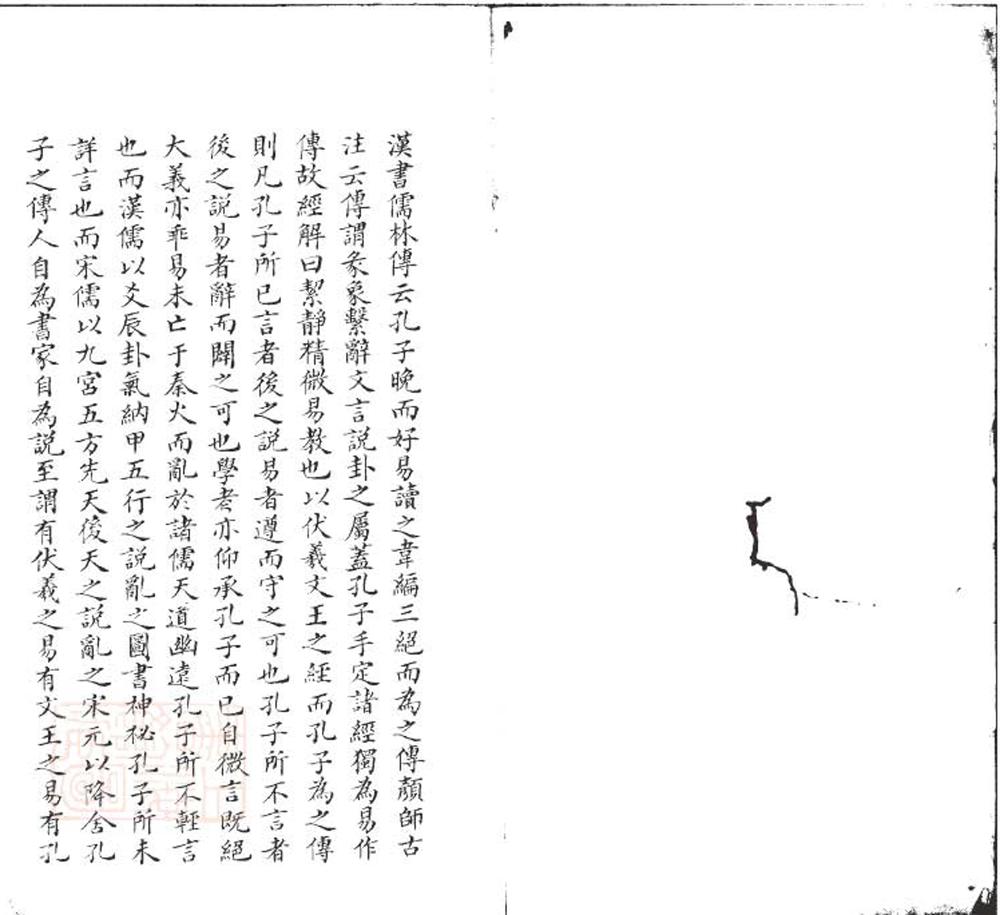 漢書儒林傳云孔子晚而好易讀之韋編三絕而為之傳顏師古
注云傳謂彖象繫辭文言說卦之屬蓋孔子手定諸經獨為易作
傳故經解曰絜靜精微易教也以伏羲文王之經而孔子為之傳
則凡孔子所已言者後之説易者遵而守之可也孔子所不言者
後之説易者辭而闢之可也學者亦仰承孔子而已自微言既絕
大義亦乖易未亡于秦火而亂於諸儒天道幽遠孔子所不輕言
也而漢儒以爻辰卦氣納甲五行之説亂之圖書神祕孔子所未
詳言也而宋儒以九宮五方先天後天之説亂之宋元以降舍孔
子之傳人自為書家自為説至謂有伏羲之易有文王之易有孔